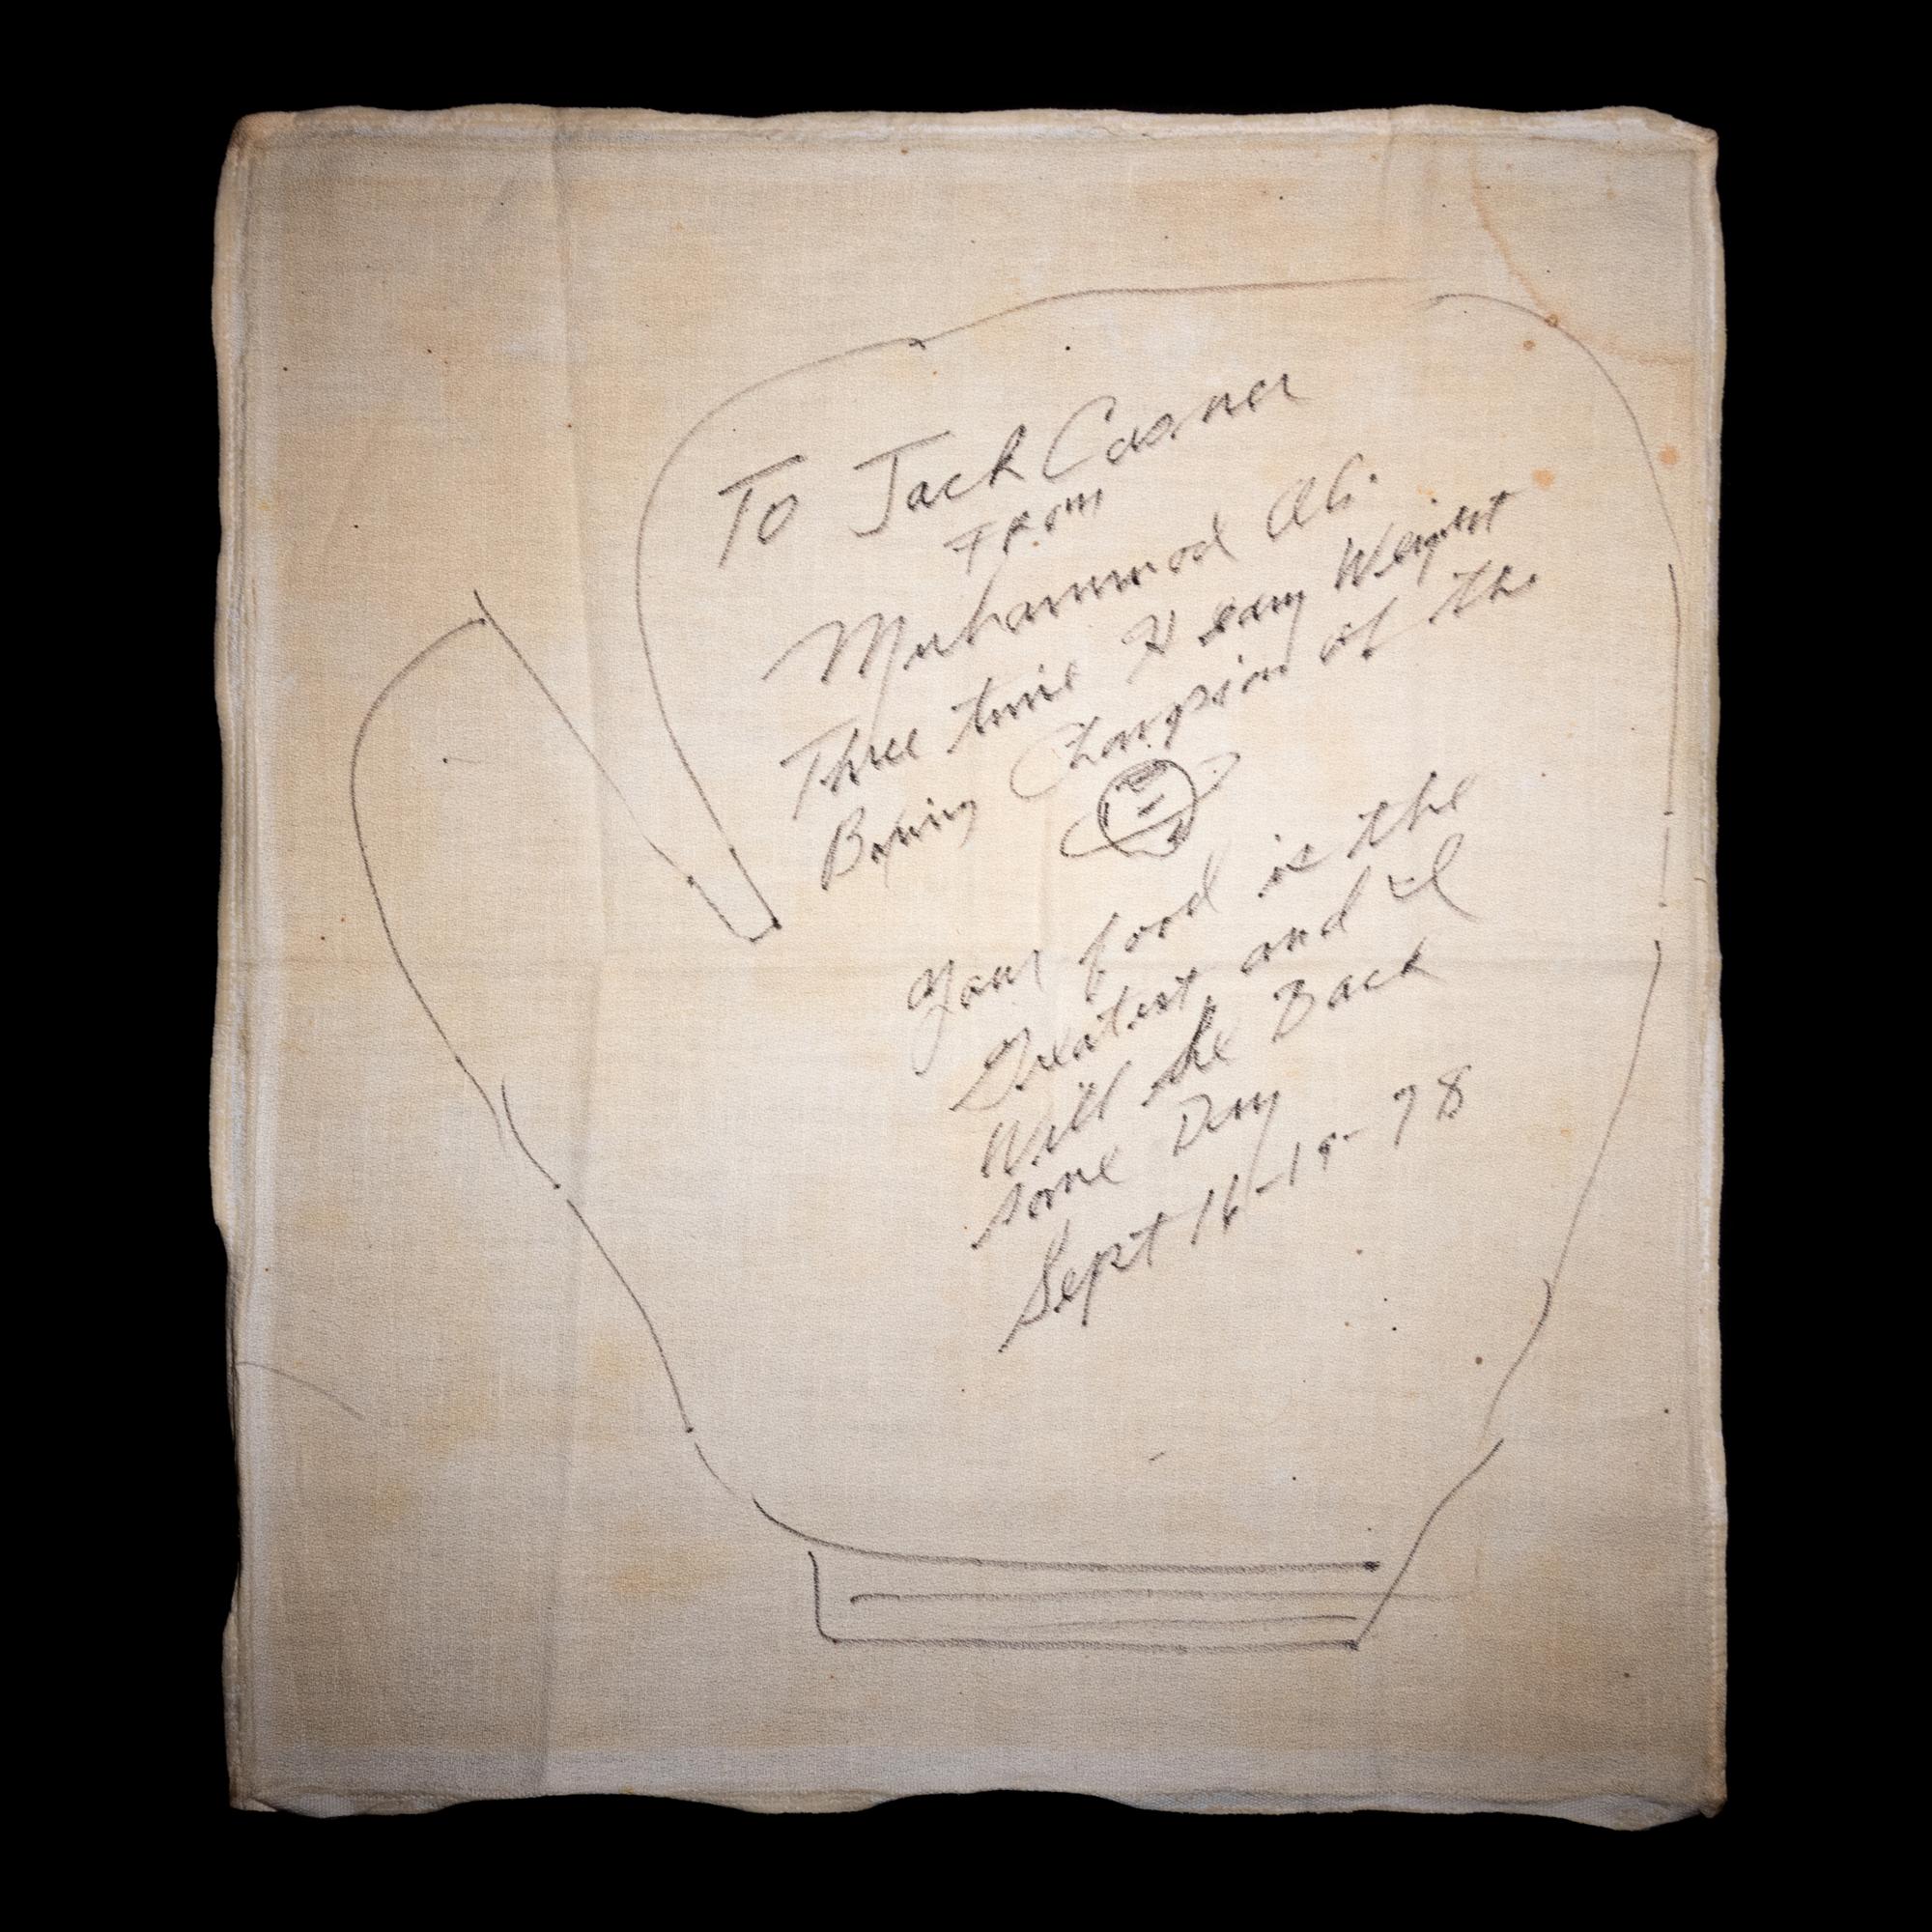 To Jack Cosner
From
Muhammad Ali
Three time Heavy Weight
Boxing Champion of the
Your food is the
Greatest and I
Will be Back
some Day
Sept 16-19-78